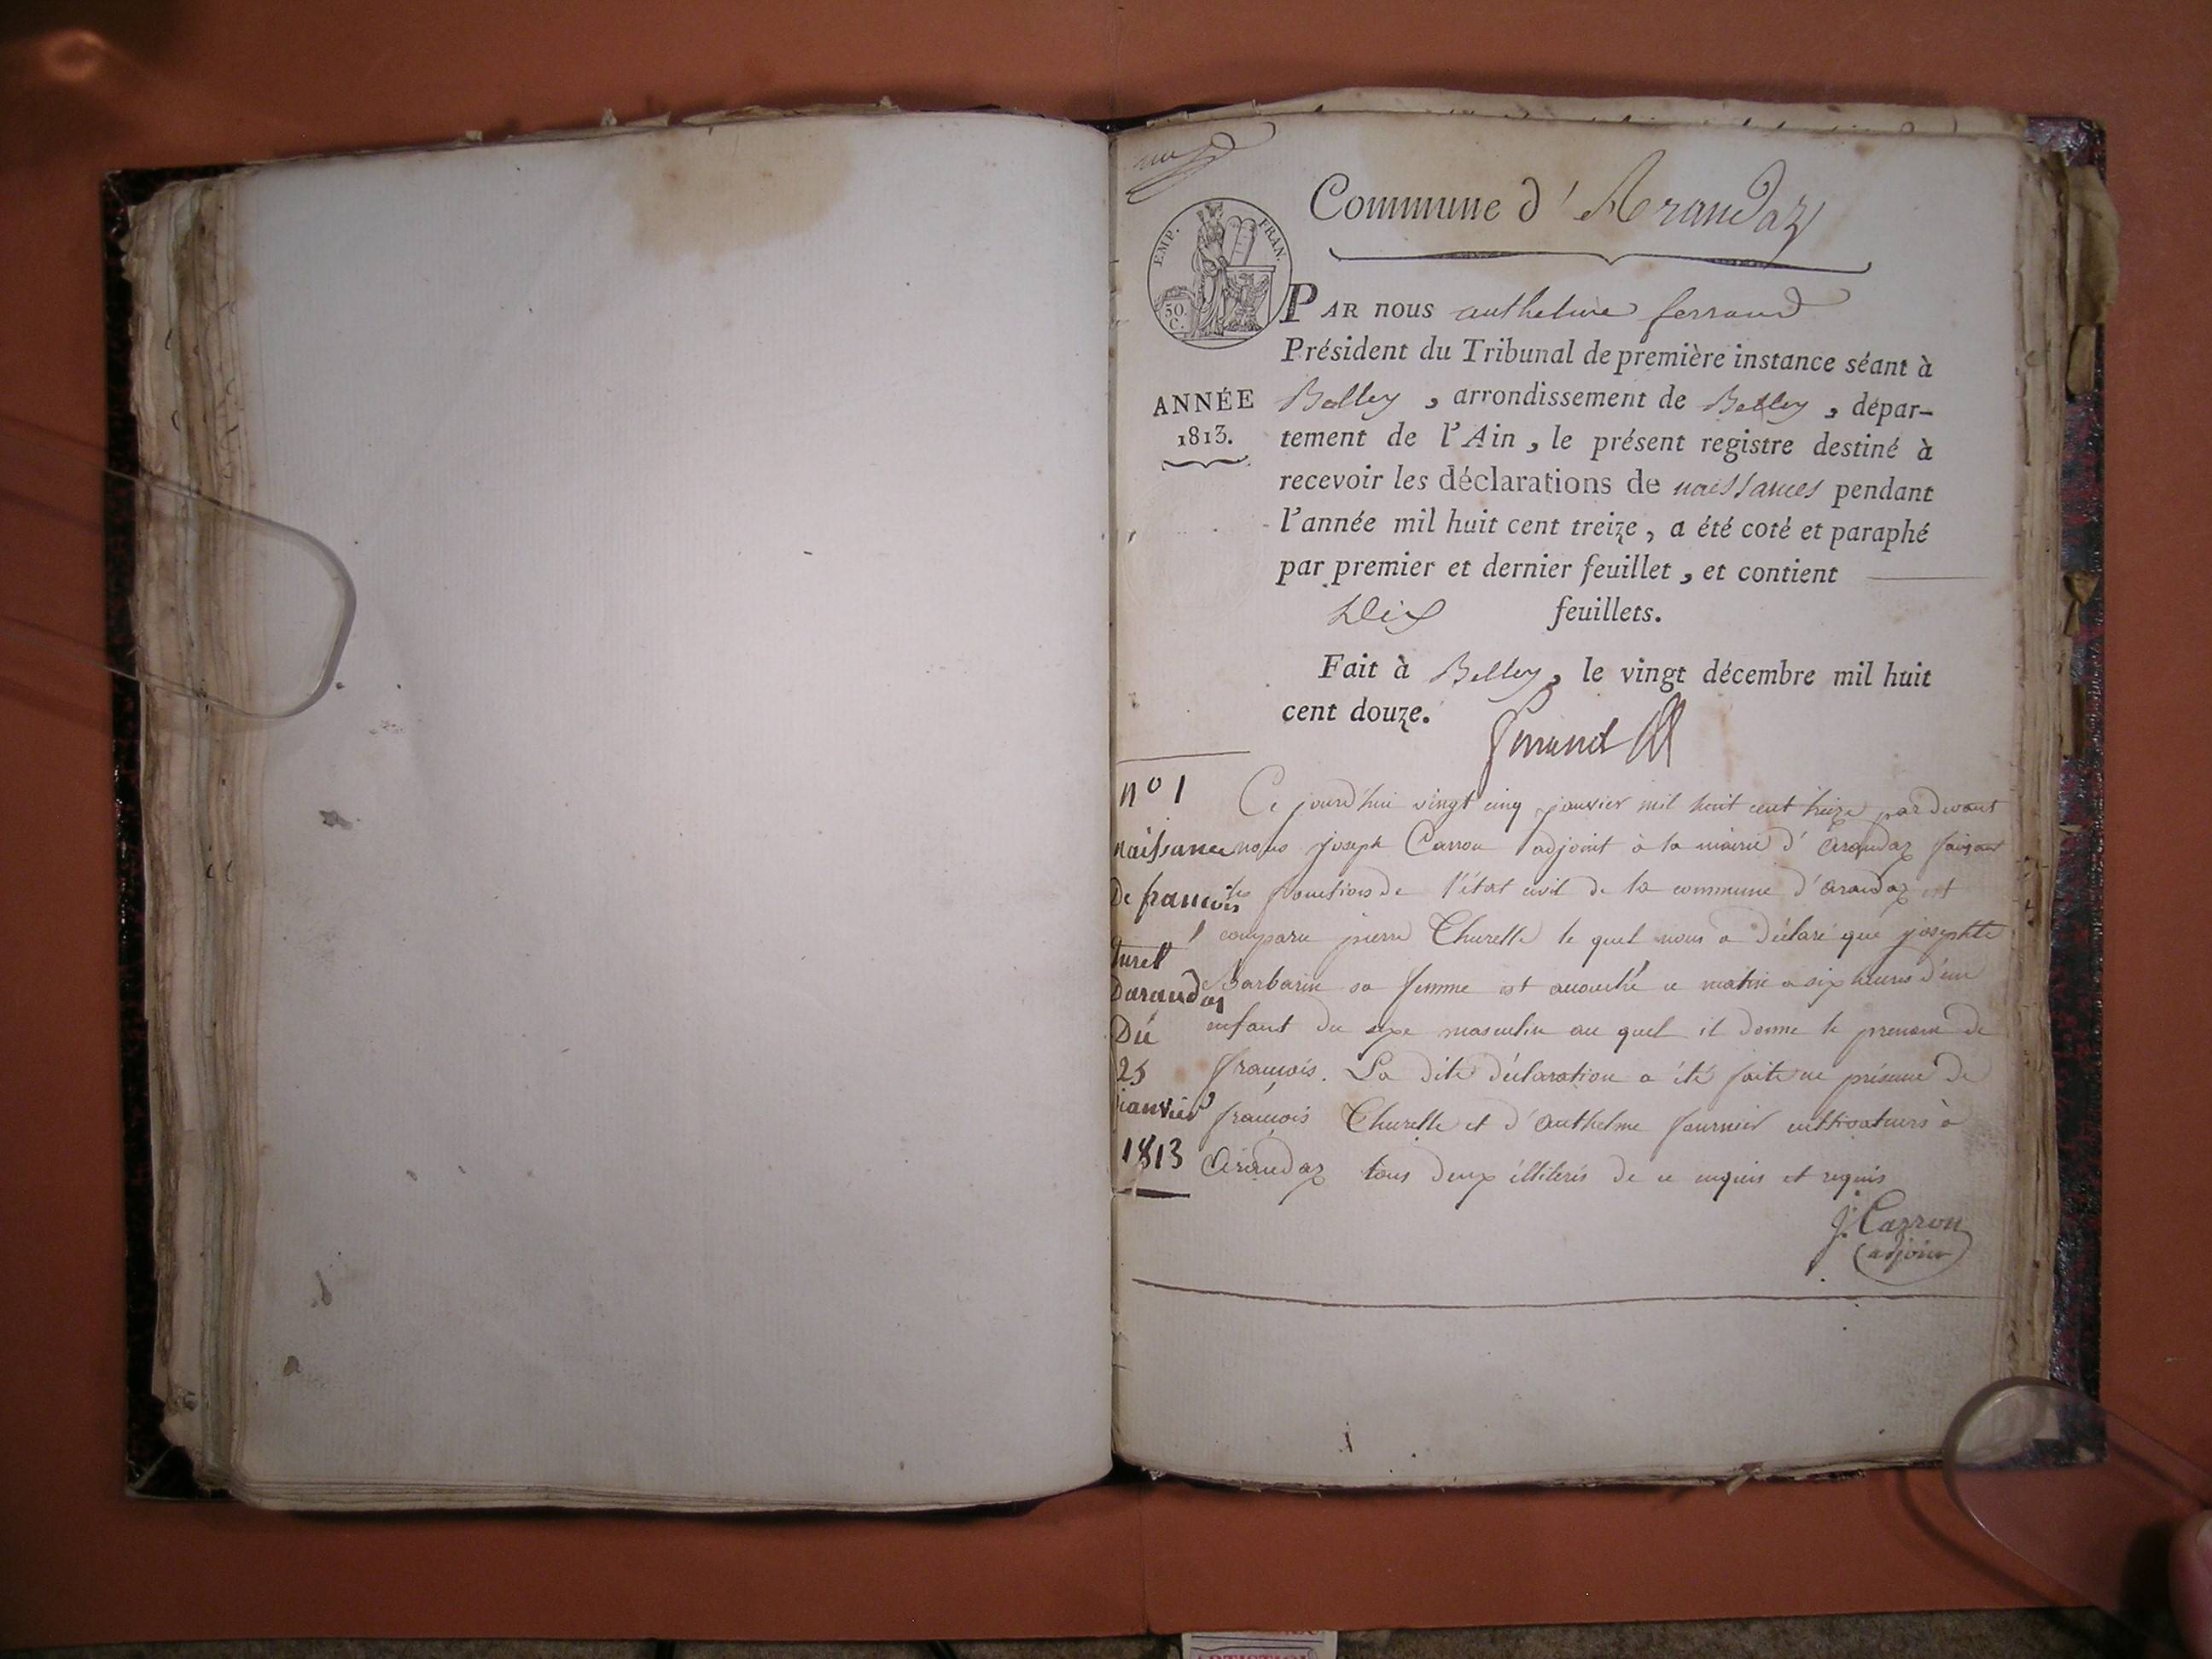 Commune d'Arandaz
EMP. FRAN.
50.
C.
PAR nous anthelme ferrand
Président du Tribunal de première instance séant à
ANNÉE
1813.
Belley, arrondissement de Belley, dépar-
tement de l'Ain, le présent registre destiné à
recevoir les déclarations de naissances pendant
l'année mil huit cent treize, a été coté et paraphé
par premier et dernier feuillet, et contient
Dix feuillets.
Fait à Belley, le vingt décembre mil huit
cent douze.
ferrand
nº 1
naissance
De francois
turel
Darandas
Du
25
janvier
1813
Ce jourd'hui vingt cinq janvier mil huit cent treize pardevant
nous joseph Carron adjoint à la mairie d'Arandaz faisant
les fonctions de l'état civil de la commune d'Arandaz est
comparu pierre Thurelle le quel nous a déclaré que josephte
Barbarin sa femme est accouché ce matin a six heures d'un
enfant du sexe masculin au quel il donne le prenom de
françois. La dite déclaration a été faite en présence de
françois Thurelle et d'Anthelme fournier cultivateurs à
Arandaz tous deux illiterés de ce enquis et requis
J. Carron
adjoint